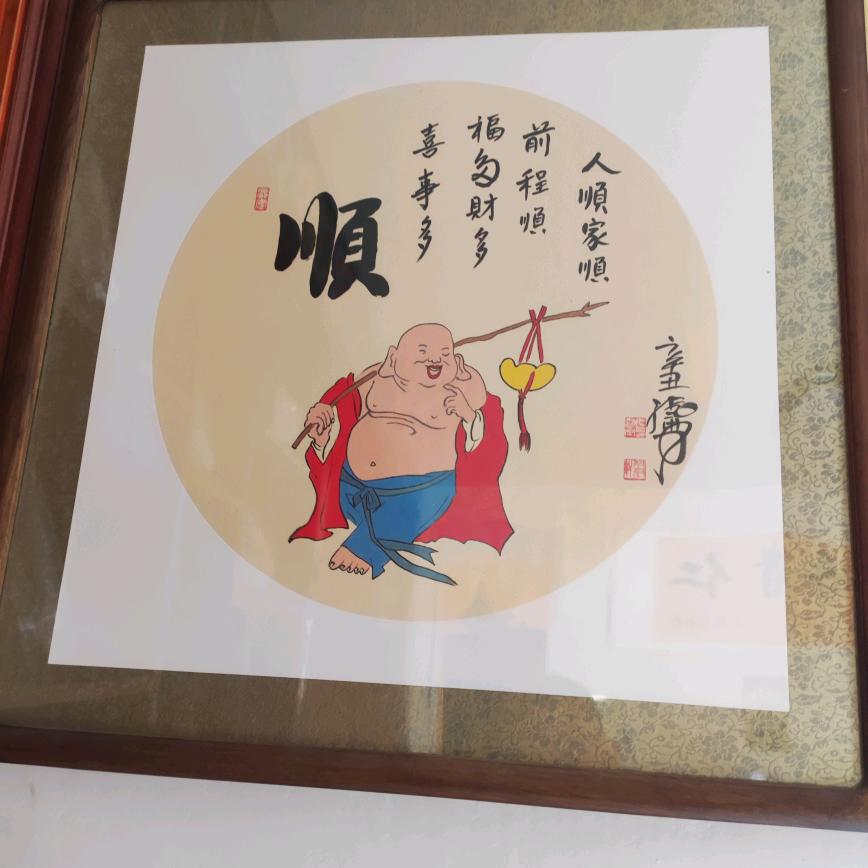 人順家順
前程順
福多財多
喜事多
順
辛丑